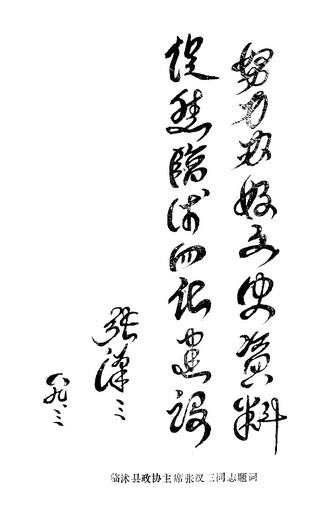 努力办好文史资料
促进临沭四化建设
张汉三
八九.三
临沭县政协主席张汉三同志题词